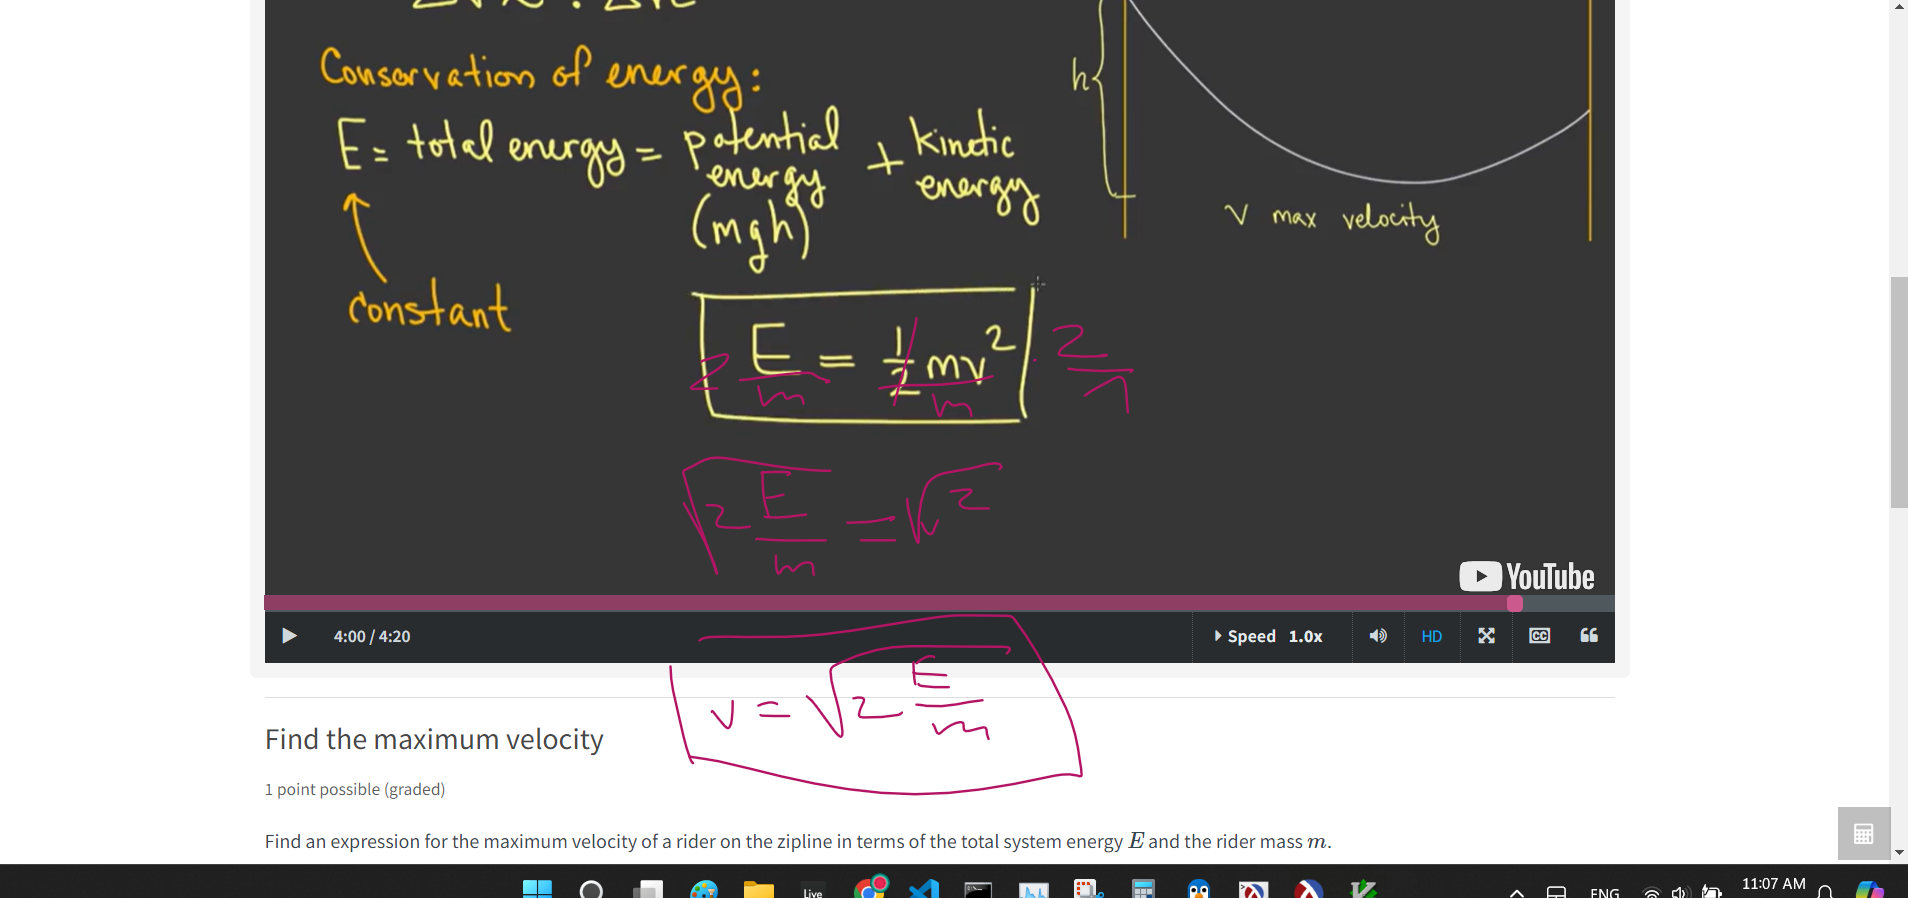 Conservation of energy:
E = total energy = potential energy (mgh) + kinetic energy
constant
h
v max velocity
E = 1/2 mv²
2 E/m = 1/2 mv²/m · 2/1
√2 E/m = √v²
YouTube
4:00 / 4:20
Speed 1.0x
HD
CC
v = √2 E/m
Find the maximum velocity
1 point possible (graded)
Find an expression for the maximum velocity of a rider on the zipline in terms of the total system energy E and the rider mass m.
Live
ENG
11:07 AM